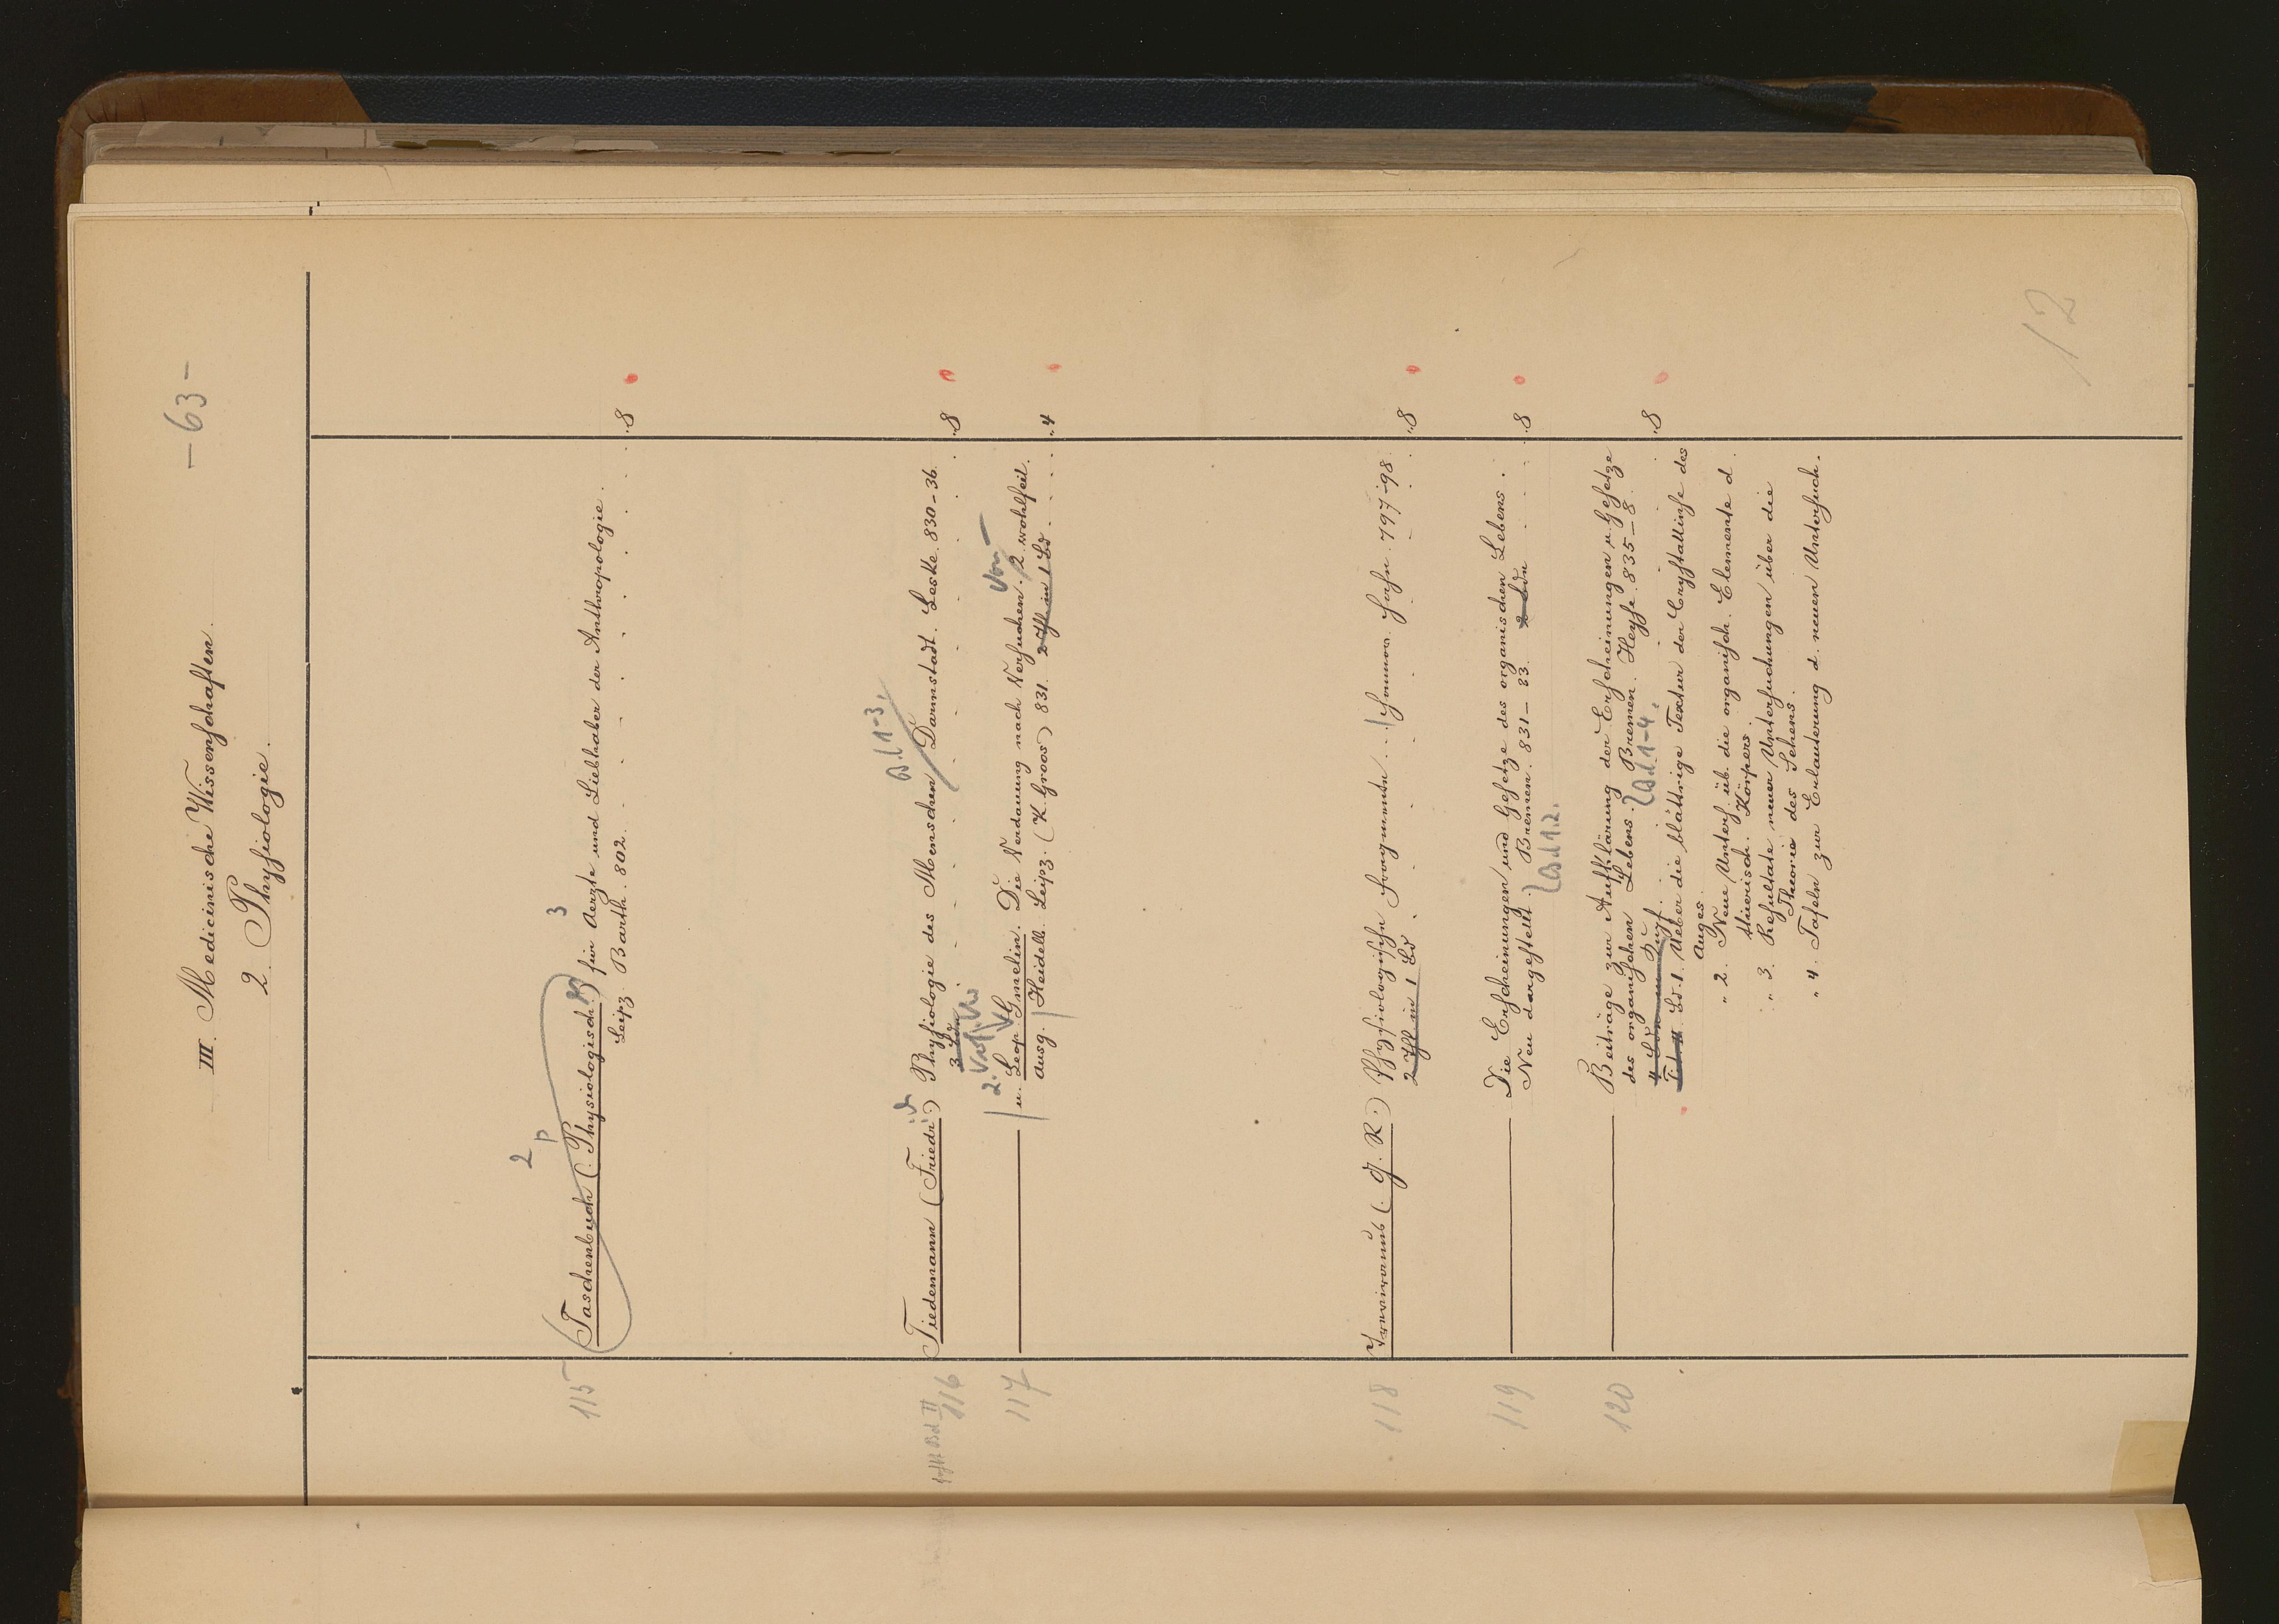 – 63 –
III. Medicinische Wissenschaften.
2. Physiologie.
2 p 3
115 Taschenbuch (Physiologisch.) für Aerzte und Liebhaber der Anthropologie.
Leipz. Barth. 802. . . . . . 8
Bd. 1-3.
116 Tiedemann (Friedr.) Physiologie des Menschen Darmstadt. Leske. 830-36.
3 Bde . . . . . . 8
117 ——— u. Leop. Gmelin. Die Verdauung nach Versuchen. 2. wohlfeil.
Ausg. Heidelb. Leipz. (K. Groos) 831. 2 Thl. in 1 Bd. . . . 4
118 Treviranus (G. R.) Physiologische Fragmente. . . Hannov. Hahn. 797-98.
2 Thl. in 1 Bd. . . . . 8
119 ——— Die Erscheinungen und Gesetze des organischen Lebens.
Neu dargestellt. Bremen. 831-33. 2 Bde. . . . 8
Bd 1.2.
120 ——— Beiträge zur Aufklärung der Erscheinungen u. Gesetze
des organischen Lebens. Bremen. Heyse. 835-8.
Bd. 1-4.
8
Bd. 1. Ueber die blättrige Textur der Crystallinse des
Auges.
„ 2. Neue Unters. üb. die organisch. Elemente d.
thierisch. Körpers.
„ 3. Resultate neuer Untersuchungen über die
Theorie des Sehens.
„ 4. Tafeln zur Erläuterung d. neuen Untersuch.
12